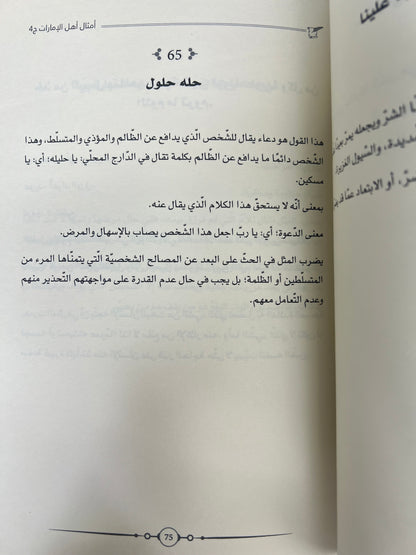 أمثال أهل الإمارات ج4
65
حله حلول
هذا القول هو دعاء يقال للشّخص الّذي يدافع عن الظّالم والمؤذي والمتسلّط، وهذا
الشّخص دائمًا ما يدافع عن الظّالم بكلمة تقال في الدّارج المحلّي: يا حليله؛ أي: يا
مسكين.
بمعنى أنّه لا يستحقّ هذا الكلام الّذي يقال عنه.
معنى الدّعوة؛ أي: يا ربّ اجعل هذا الشّخص يصاب بالإسهال والمرض.
يضرب المثل في الحثّ على البعد عن المصالح الشّخصيّة الّتي يتمنّاها المرء من
المتسلّطين أو الظّلمة؛ بل يجب في حال عدم القدرة على مواجهتهم التّحذير منهم
وعدم التّعامل معهم.
75
علينا
الشرّ ويجعله يمرّ
والسّيول الغزيرة
أو الابتعاد عمّا